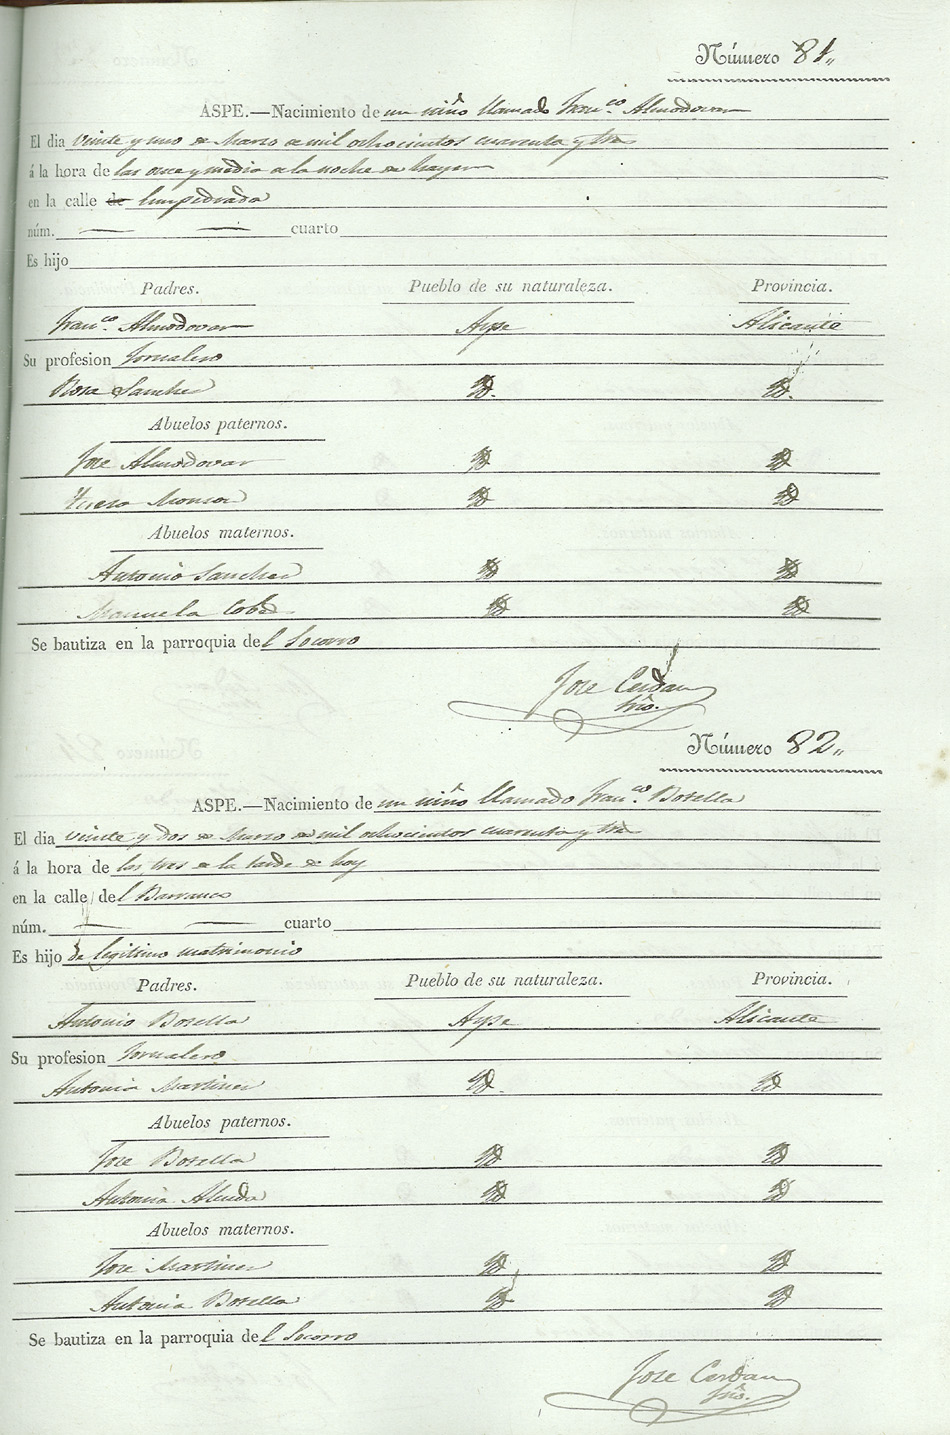 Número 81,,
ASPE.—Nacimiento de un niño llamado Fran.co Almodovar
El dia veinte y uno de Marzo de mil ochocientos cuarenta y tres
á la hora de las once y media de la noche de hayer
en la calle de Empedrada
núm. — — cuarto
Es hijo
Padres. Pueblo de su naturaleza. Provincia.
Fran.co Almodovar Aspe Alicante
Su profesion Jornalero
Rosa Sanchez Id. Id.
Abuelos paternos.
Jose Almodovar Id Id
Teresa Id Id
Abuelos maternos.
Antonio Sanchez Id Id
Manuela Id Id
Se bautiza en la parroquia del Socorro
Jose Cerdan
Srio.
Número 82,,
ASPE.—Nacimiento de un niño llamado Fran.co Botella
El dia veinte y dos de Marzo de mil ochocientos cuarenta y tres
á la hora de las tres de la tarde de hoy
en la calle del Barranco
núm. — — cuarto
Es hijo de legitimo matrimonio
Padres. Pueblo de su naturaleza. Provincia.
Antonio Botella Aspe Alicante
Su profesion Jornalero
Antonia Martinez Id. Id
Abuelos paternos.
Jose Botella Id Id
Antonia Id Id
Abuelos maternos.
Jose Martinez Id Id
Antonia Botella Id Id
Se bautiza en la parroquia del Socorro
Jose Cerdan
Srio.